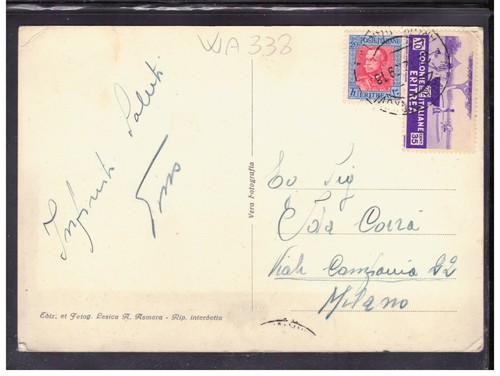 WA 338
POSTE ITALIANE
ERITREA
COLONIE ITALIANE
ERITREA
35
Infiniti Saluti
Tino
Vera Fotografia
Ida Corrà
Viale Campania 22
Milano
Ediz. et Fotog. Lesica A. Asmara - Rip. interdetta